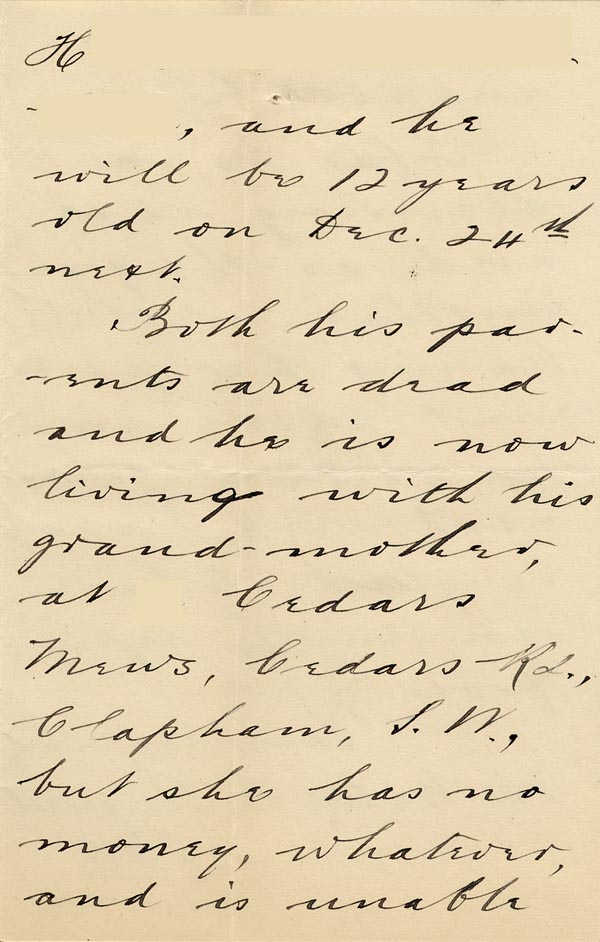 H
, and he
will be 12 years
old on Dec. 24th
next.
Both his par-
-ents are dead
and he is now
living with his
grand-mother,
at Cedars
Mews, Cedars Rd.,
Clapham, S. W.,
but she has no
money, whatever,
and is unable